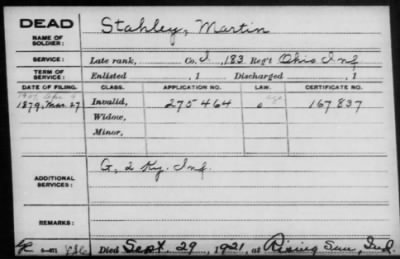 DEAD Stahley, Martin
NAME OF SOLDIER:
SERVICE: Late rank, Co. I, 183 Reg't Ohio Inf
TERM OF SERVICE: Enlisted , 1 Discharged , 1
DATE OF FILING. CLASS. APPLICATION NO. LAW. CERTIFICATE NO.
1879, Mar. 27 Invalid, 275464 167837
Widow,
Minor,
ADDITIONAL SERVICES: G, 2 Ky. Inf.
REMARKS:
Died Sept. 29, 1921, at Rising Sun, Ind.